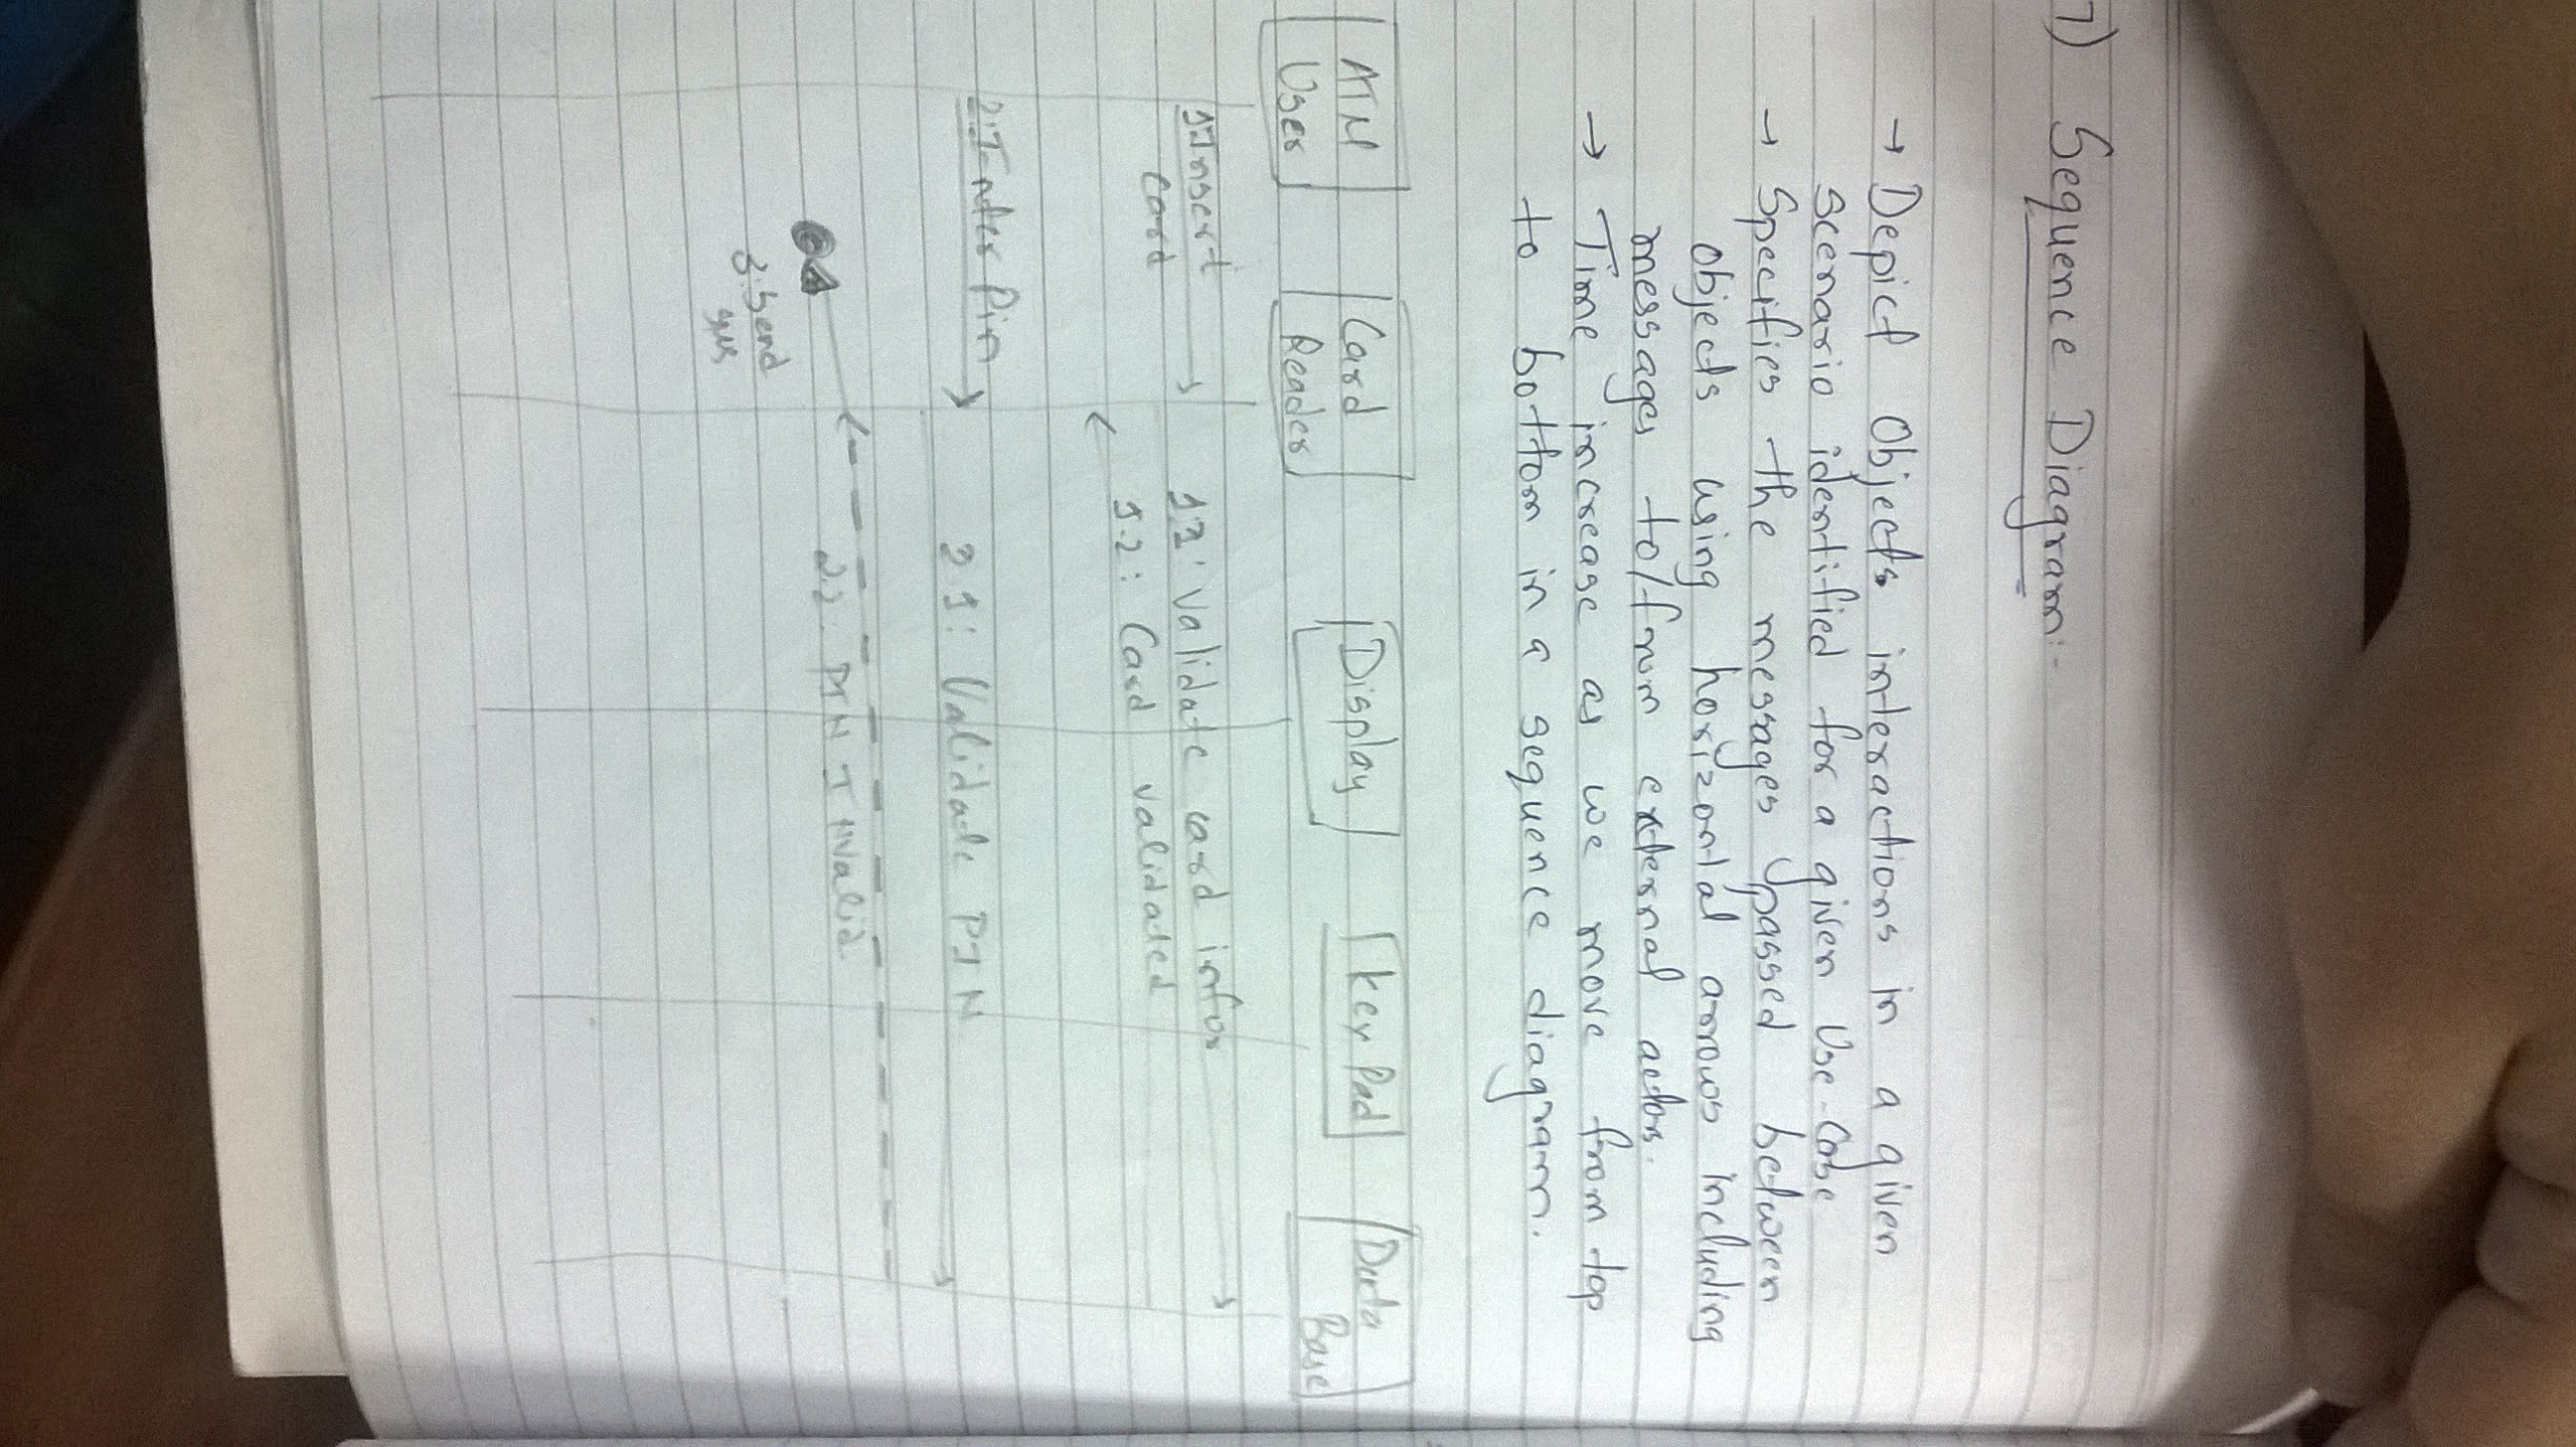 7) Sequence Diagram:-
→ Depict Objects interactions in a given
scenario identified for a given Use-Case
→ Specifies the messages passed between
objects using horizontal arrows including
messages to/from external actors.
→ Time increase as we move from top
to bottom in a sequence diagram.
ATM
User
Card
Reader
Display
Key Pad
Data
Base
1:Insert
card
1.1: Validate card infor
1.2: Card validated
2:Enter Pin
2.1: Validate PIN
2.2. PIN Invalid
3:Send
SMS